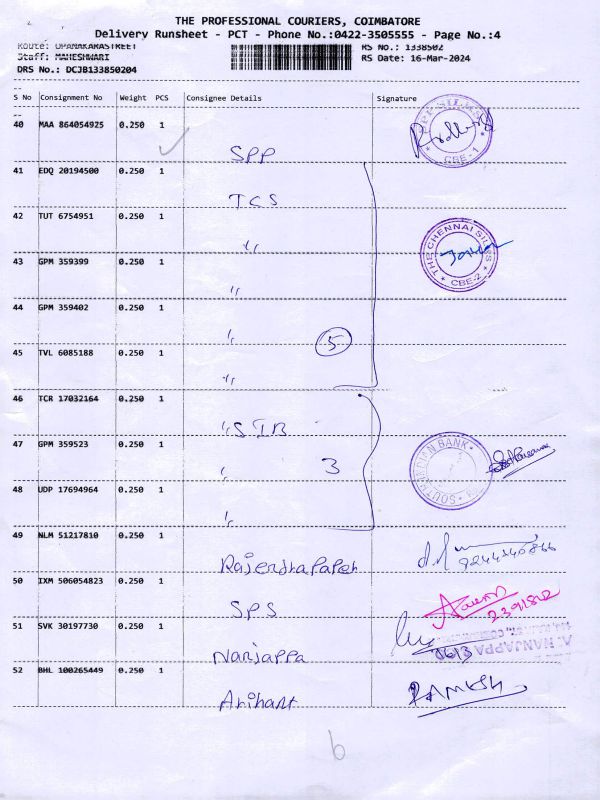 THE PROFESSIONAL COURIERS, COIMBATORE
Delivery Runsheet - PCT - Phone No.:0422-3505555 - Page No.:4
Route: OPANAKARASTREET RS No.: 1338502
Staff: MAHESHWARI RS Date: 16-Mar-2024
DRS No.: DCJB133850204
S No Consignment No Weight PCS Consignee Details Signature
40 MAA 864054925 0.250 1
SPP
CBE-1
41 EDQ 20194500 0.250 1
TCS
42 TUT 6754951 0.250 1
〃
THE CHENNAI SILKS
CBE-2
43 GPM 359399 0.250 1
〃
44 GPM 359402 0.250 1
〃
5
45 TVL 6085188 0.250 1
〃
46 TCR 17032164 0.250 1
〃 SIB
47 GPM 359523 0.250 1
〃 3
SOUTH INDIAN BANK
48 UDP 17694964 0.250 1
〃
49 NLM 51217810 0.250 1
Rajendrapaper
50 IXM 506054823 0.250 1
SPS
51 SVK 30197730 0.250 1
Nanjappa
A. NANJAPPA
52 BHL 100265449 0.250 1
Arihant
RAMESH
b